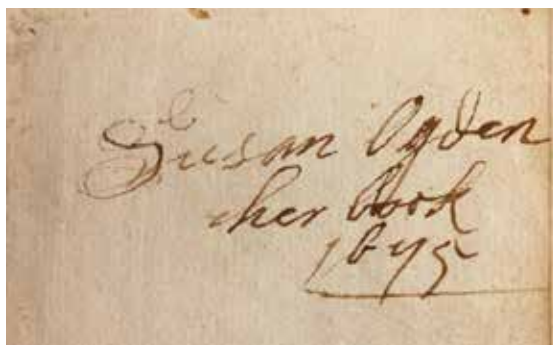 Susan Ogden
her book
1675